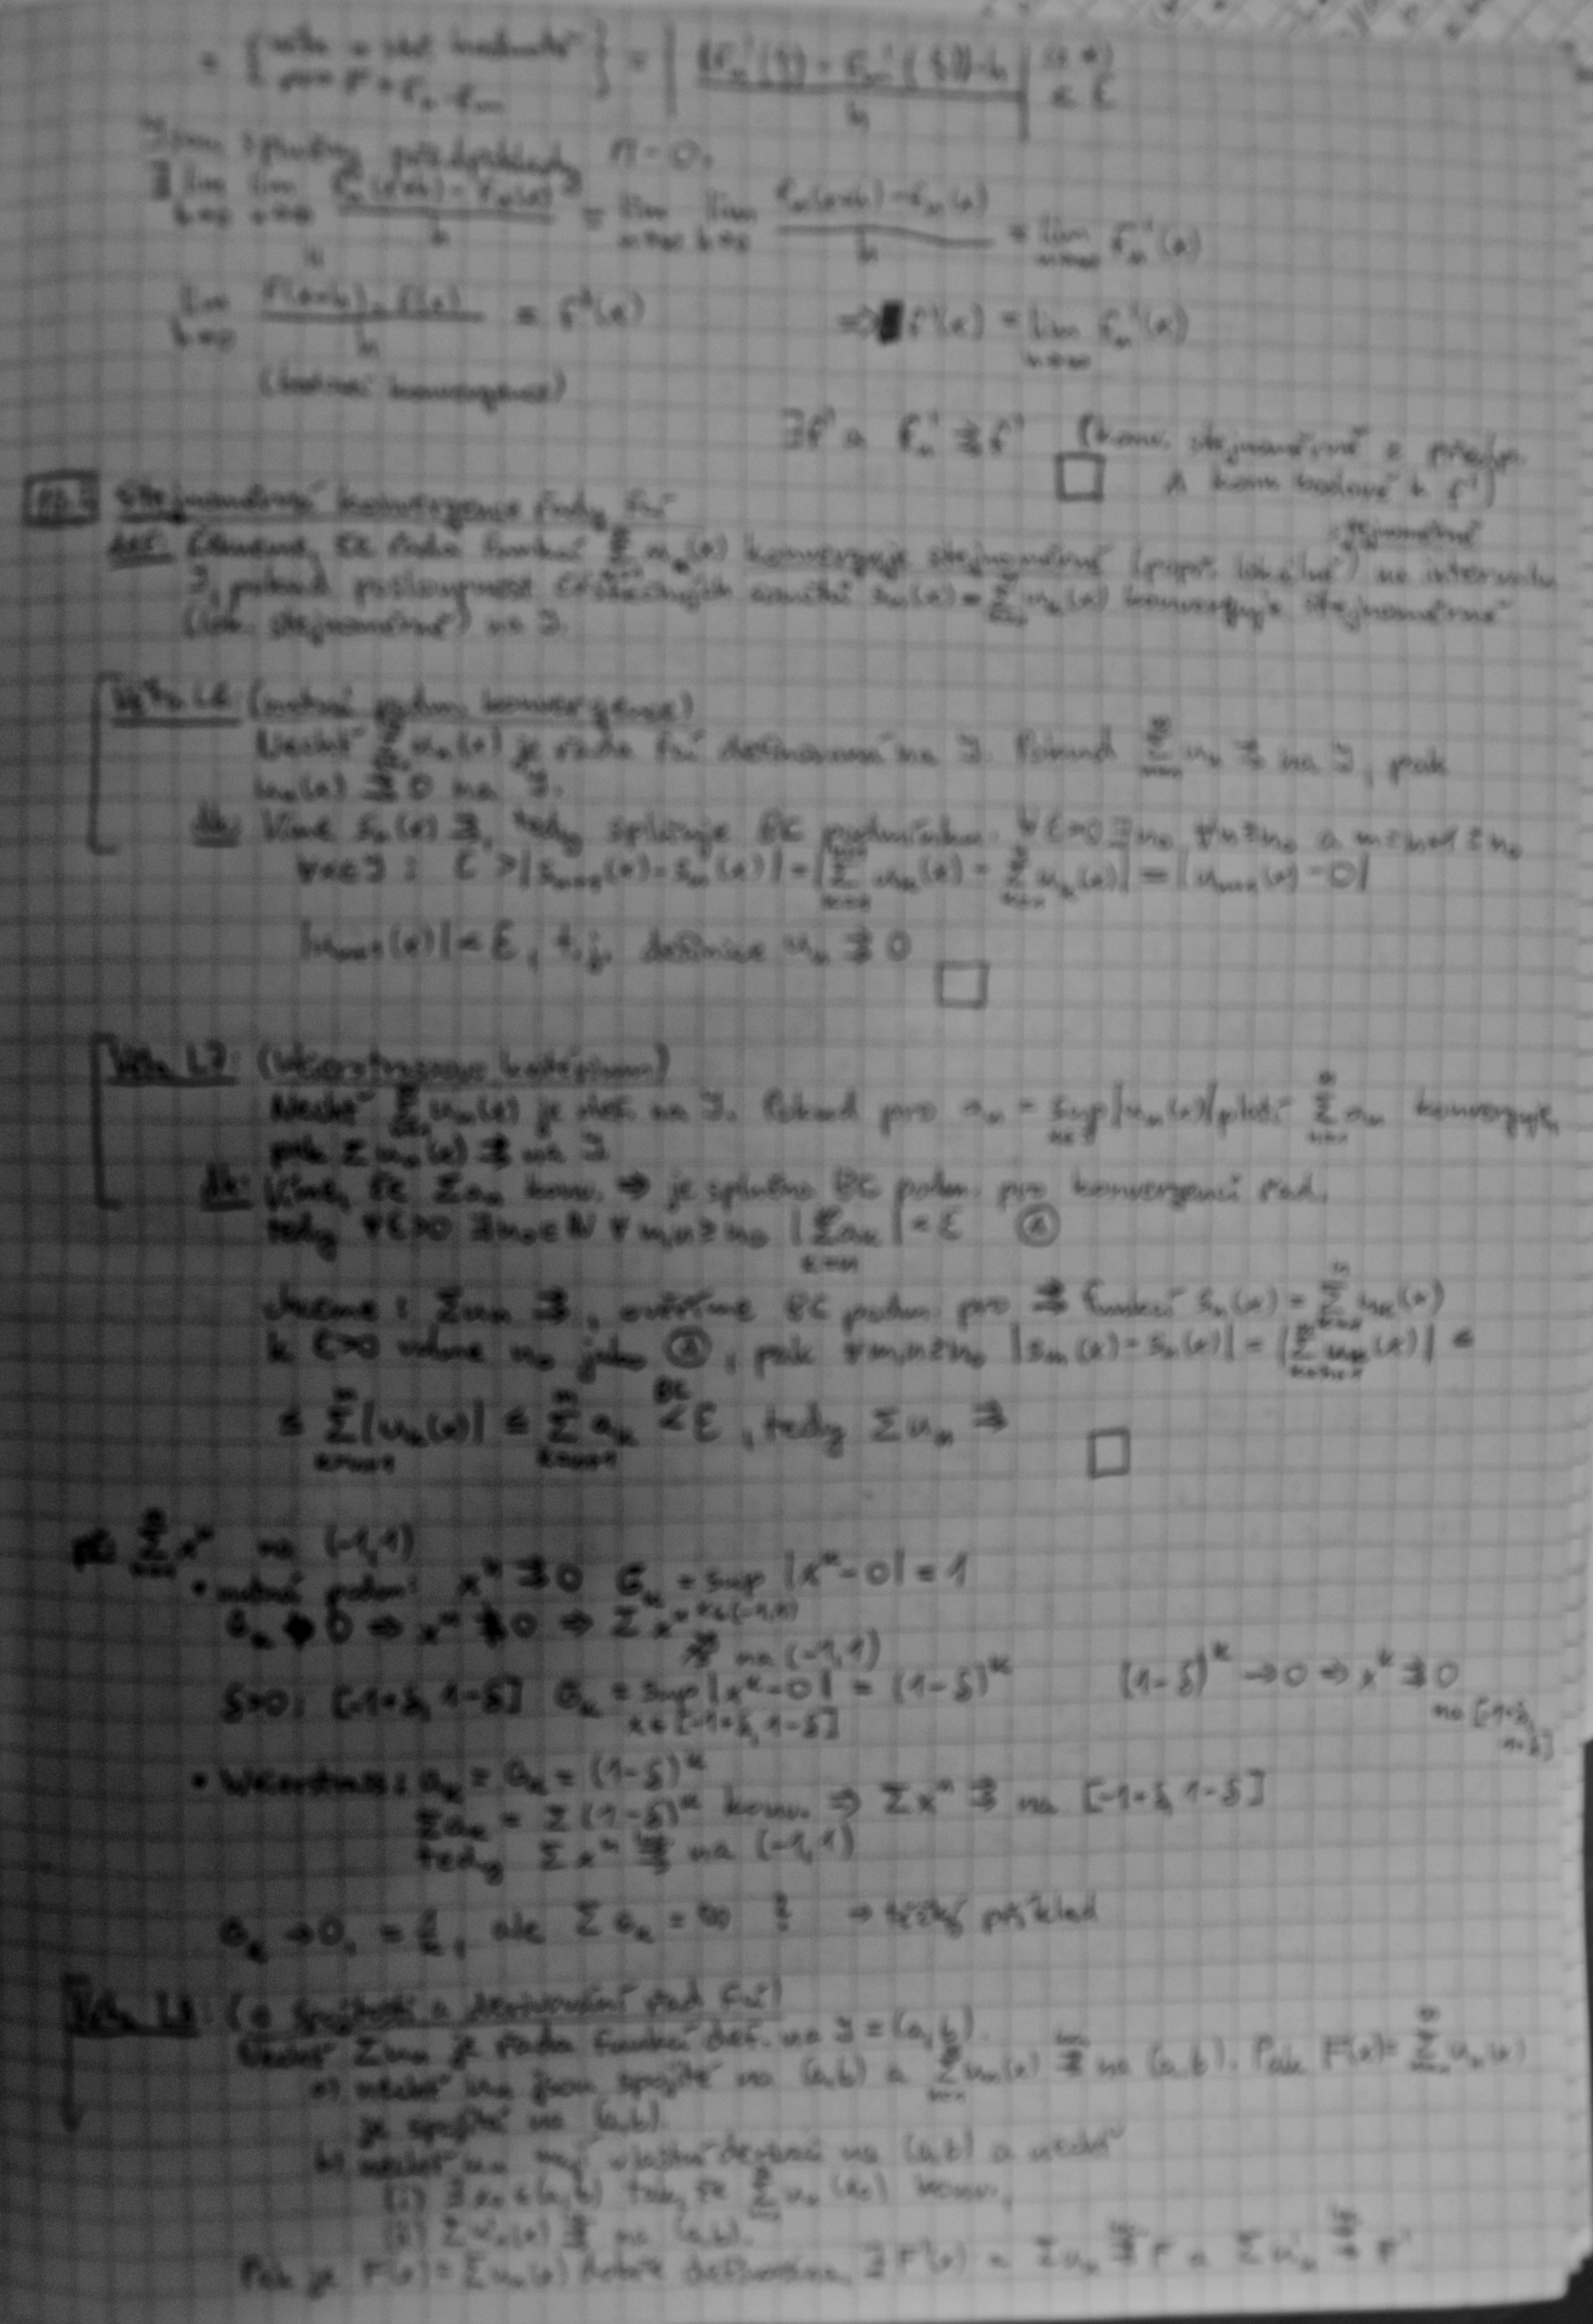 = { věta o stř. hodnotě } = | ((f_n'(ξ) - f_m'(ξ))·h / h | < ε
pro F = f_n - f_m
Jsou splněny předpoklady
∃ lim_{h→0} lim_{n→∞} (f_n(x+h) - f_n(x)) / h = lim_{n→∞} lim_{h→0} (f_n(x+h) - f_n(x)) / h = lim_{n→∞} f_n'(x)
lim_{h→0} (f(x+h) - f(x)) / h = f'(x) ⇒ f'(x) = lim_{n→∞} f_n'(x)
(bodová konvergence)
∃f' a f_n' ⇉ f' (konv. stejnoměrně z předp.
a konv. bodově k f') □
Stejnoměrná konvergence řady fcí
stejnoměrně
def: Řekneme, že řada funkcí Σ u_k(x) konverguje stejnoměrně (popř. lokálně) na intervalu
J, pokud posloupnost částečných součtů s_n(x) = Σ u_k(x) konverguje stejnoměrně
(lok. stejnoměrně) na J.
Věta 1.6: (nutná podm. konvergence)
Nechť Σ u_n(x) je řada fcí definovaná na J. Pokud Σ u_n ⇉ na J, pak
u_n(x) ⇉ 0 na J.
dk: Víme s_n(x) ⇉, tedy splňuje BC podmínku. ∀ε>0 ∃n_0 ∀n≥n_0 a m=n+1≥n_0
∀x∈J : ε > |s_{n+1}(x) - s_n(x)| = |Σ u_k(x) - Σ u_k(x)| = |u_{n+1}(x) - 0|
|u_{n+1}(x)| < ε, t.j. definice u_n ⇉ 0
□
Věta 1.7: (Weierstrassovo kritérium)
Nechť Σ u_n(x) je def. na J. Pokud pro a_n = sup_{x∈J} |u_n(x)| platí Σ a_n konverguje,
pak Σ u_n(x) ⇉ na J
dk: Víme, že Σ a_n konv. ⇒ je splněna BC podm. pro konvergenci řad,
tedy ∀ε>0 ∃n_0∈N ∀m,n≥n_0 |Σ a_k| < ε
chceme : Σ u_n ⇉, ověříme BC podm. pro ⇉ funkcí s_n(x) = Σ u_k(x)
k ε>0 volme n_0 jako, pak ∀m,n≥n_0 |s_m(x) - s_n(x)| = |Σ_{k=n+1}^m u_k(x)| ≤
≤ Σ_{k=n+1}^m |u_k(x)| ≤ Σ_{k=n+1}^m a_k <^{BC} ε, tedy Σ u_n ⇉
□
př: Σ x^k na (-1,1)
• nutná podm: x^k ⇉ 0 σ_k = sup |x^k - 0| = 1
x∈(-1,1)
σ_k ↛ 0 ⇒ x^k ⇉̸ 0 ⇒ Σ x^k
⇉̸ na (-1,1)
δ>0: [-1+δ, 1-δ] σ_k = sup |x^k - 0| = (1-δ)^k (1-δ)^k → 0 ⇒ x^k ⇉ 0
x∈[-1+δ, 1-δ] na [-1+δ,
1-δ]
• Weierstrass: a_k = σ_k = (1-δ)^k
Σ a_k = Σ (1-δ)^k konv. ⇒ Σ x^k ⇉ na [-1+δ, 1-δ]
tedy Σ x^k ⇉^{loc} na (-1,1)
σ_k → 0, = 1/k, ale Σ σ_k = ∞ ⇒ těžký příklad
Věta 1.8: (o spojitosti a derivování řad fcí)
Nechť Σ u_n je řada funkcí def. na J = (a,b).
a) nechť u_n jsou spojité na (a,b) a Σ u_n(x) ⇉^{loc} na (a,b). Pak F(x) = Σ u_n(x)
je spojitá na (a,b).
b) nechť u_n mají vlastní derivaci na (a,b) a nechť
(i) ∃ x_0 ∈ (a,b) tak, že Σ u_n(x_0) konv.,
(ii) Σ u_n'(x) ⇉^{loc} na (a,b).
Pak je F(x) = Σ u_n(x) dobře definována, ∃ F'(x) a Σ u_n ⇉^{loc} F a Σ u_n' ⇉^{loc} F'